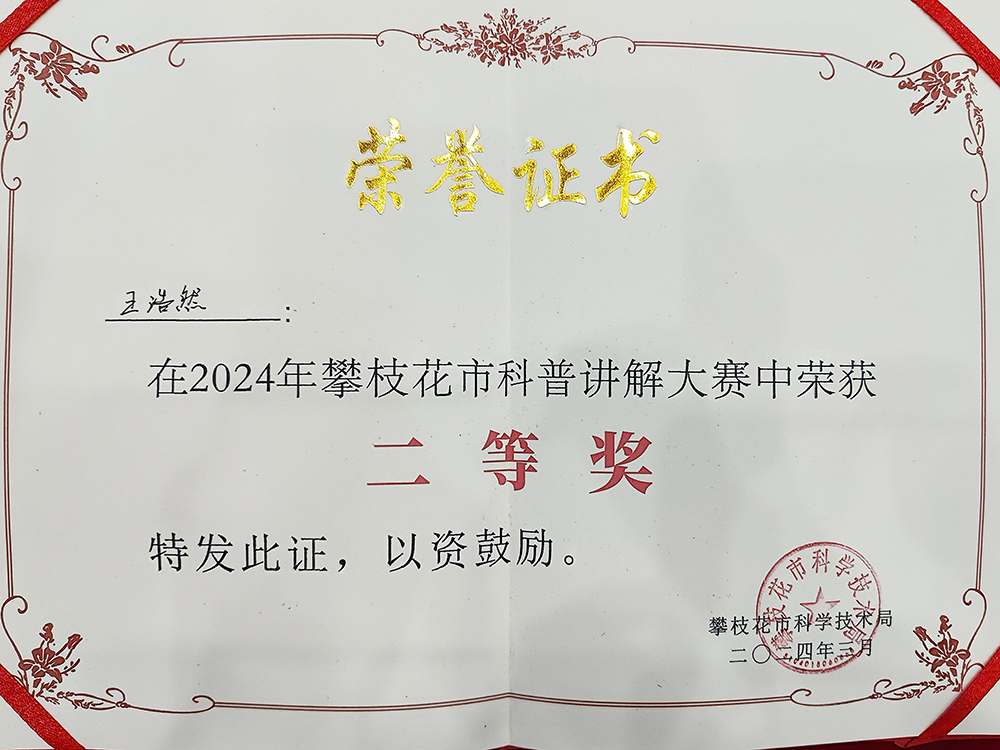 荣誉证书
王浩然：
在2024年攀枝花市科普讲解大赛中荣获
二等奖
特发此证，以资鼓励。
攀枝花市科学技术局
攀枝花市科学技术局
二〇二四年三月